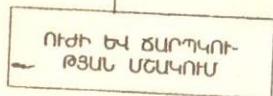 ՈՒԺԻ ԵՎ ՃԱՐՊԿՈՒ-
ԹՅԱՆ ՄՇԱԿՈՒՄ